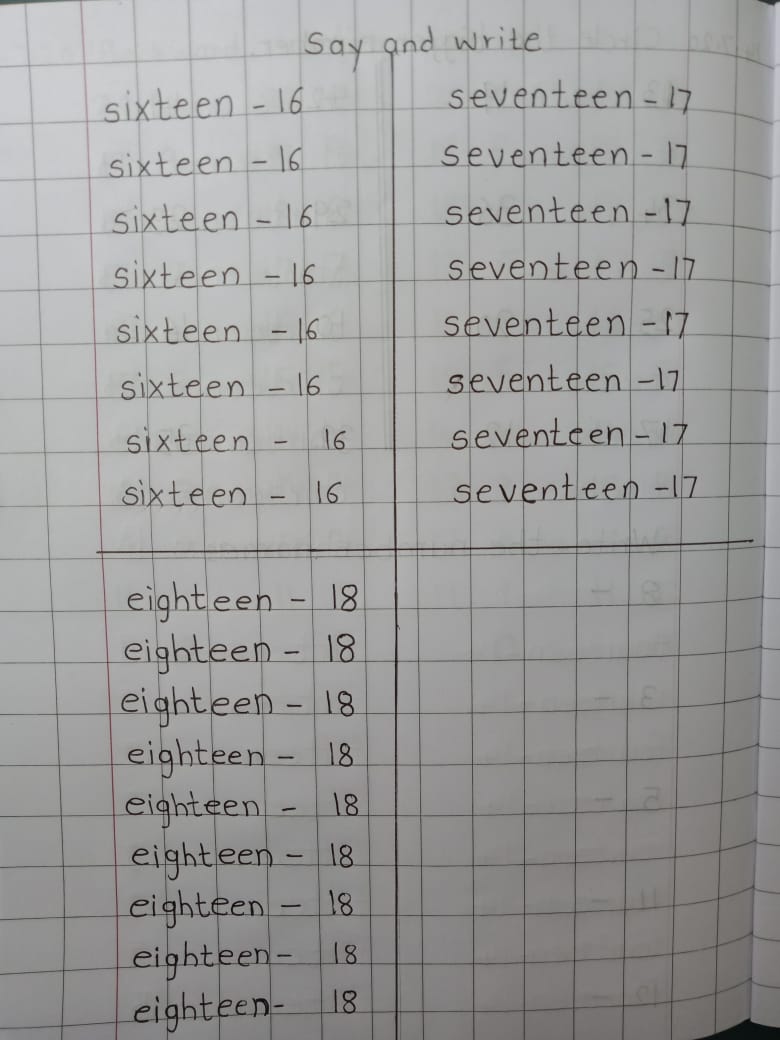 Say and write
sixteen - 16
sixteen - 16
sixteen - 16
sixteen - 16
sixteen - 16
sixteen - 16
sixteen - 16
sixteen - 16
seventeen - 17
seventeen - 17
seventeen - 17
seventeen - 17
seventeen - 17
seventeen - 17
seventeen - 17
seventeen - 17
eighteen - 18
eighteen - 18
eighteen - 18
eighteen - 18
eighteen - 18
eighteen - 18
eighteen - 18
eighteen - 18
eighteen - 18